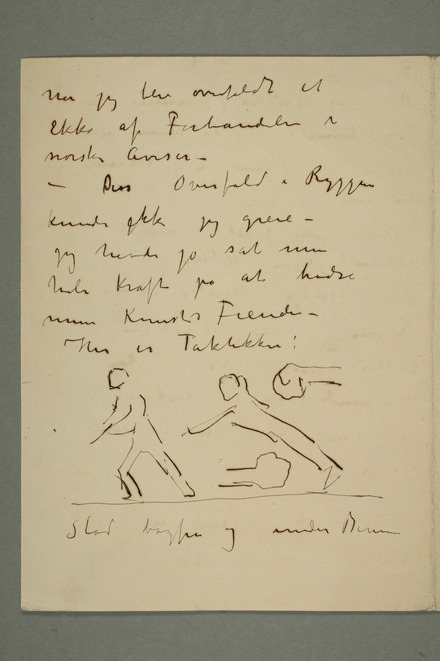 naar jeg blev overfaldt et
Ekko af Forhandelsen i
norske Aviser –
– Diss Overfald i Ryggen
kunde ikke jeg greie –
jeg havde jo sat min
hele Kraft på at
min Kunsts Fiender –
Her er Taktikken:
Slad bagfra og under Benene